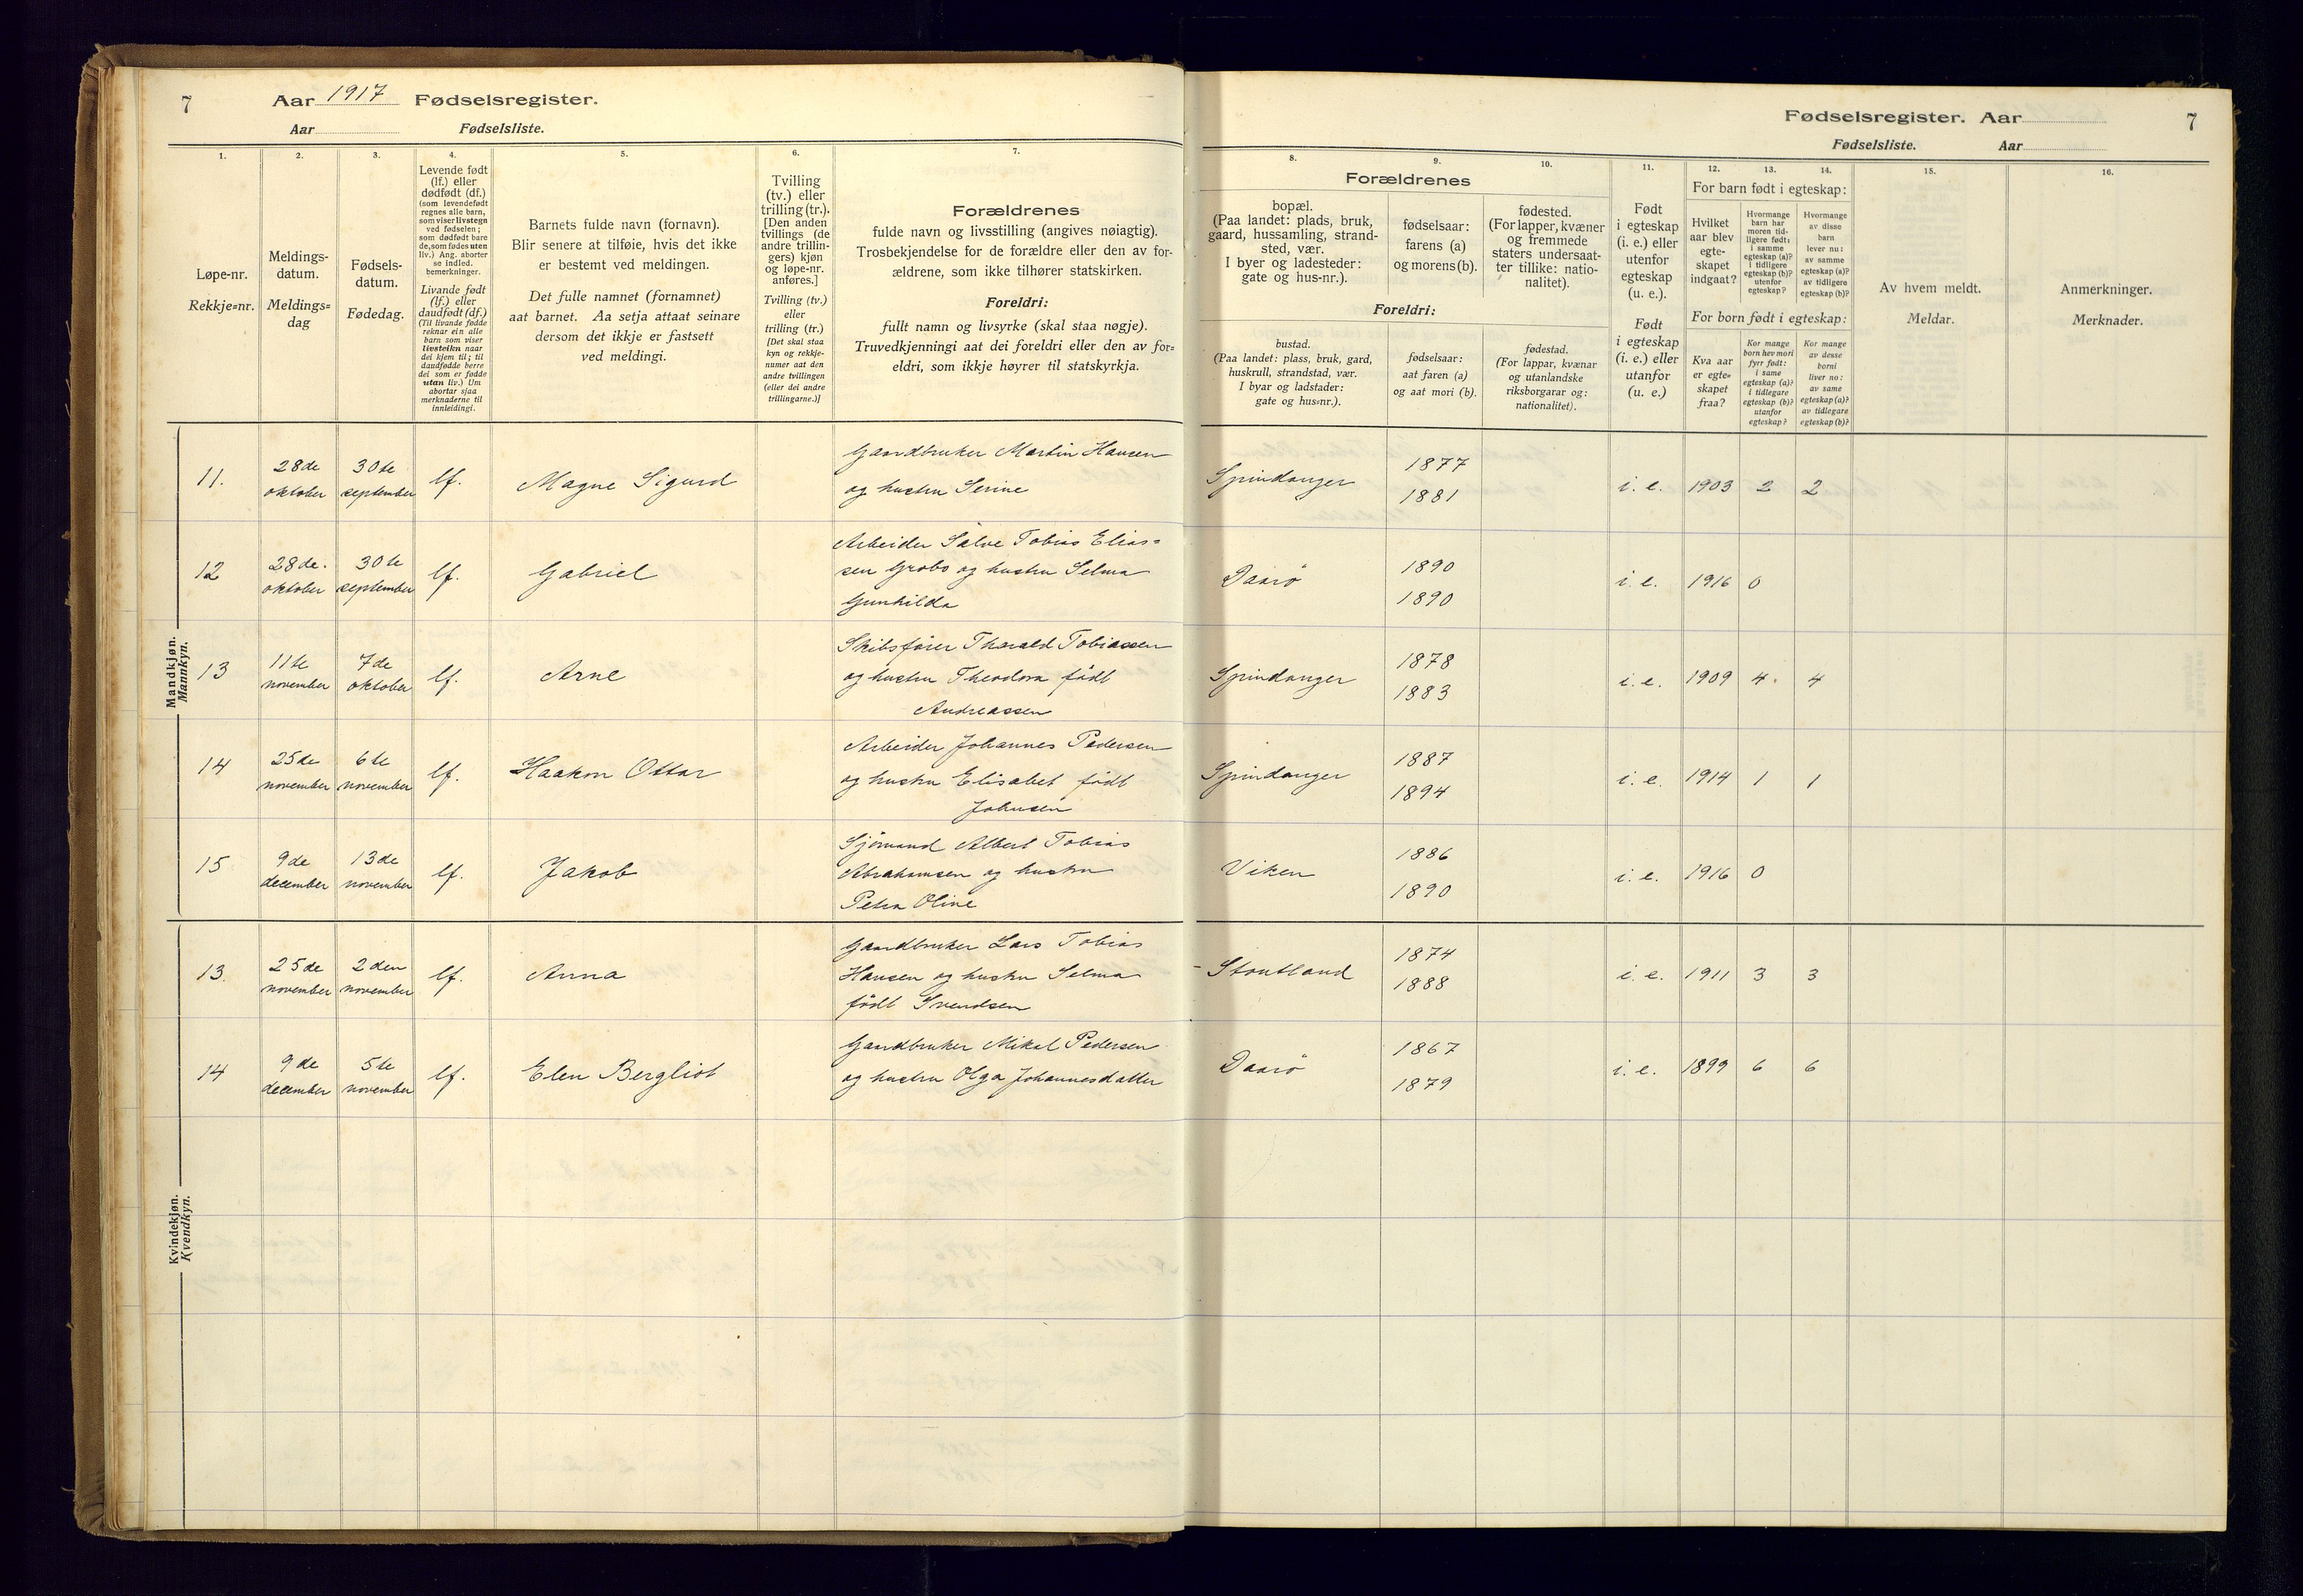 7
Aar 1917 Fødselsregister.
Aar Fødselsliste.
1.
2.
3.
4.
5.
6.
7.
Løpe-nr.
Rekkje=nr.
Meldings-
datum.
Meldings=
dag
Fødsels-
datum.
Fødedag.
Levende født
(lf.) eller
dødfødt (df.)
(som levendefødt
regnes alle barn,
som viser livstegn
ved fødselen;
som dødfødt bare
de, som fødes uten
liv.) Ang. aborter
se indled.
bemerkninger.
Livande født
(lf.) eller
daudfødt (df.)
(Til livande fødde
reknar ein alle
barn som viser
livsteikn naar
dei kjem til; til
daudfødde berre
dei som er fødde
utan liv.) Um
abortar sjaa
merknaderne til
innleidingi.
Barnets fulde navn (fornavn).
Blir senere at tilføie, hvis det ikke
er bestemt ved meldingen.
Det fulle namnet (fornamnet)
aat barnet. Aa setja attaat seinare
dersom det ikkje er fastsett
ved meldingi.
Tvilling
(tv.) eller
trilling (tr.).
[Den anden
tvillings (de
andre trillin-
gers) kjøn
og løpe-nr.
anføres.]
Tvilling (tv.)
eller
trilling (tr.)
[Det skal staa
kyn og rekkje-
numer aat den
andre tvillingen
(eller dei andre
trillingarne.)]
Forældrenes
fulde navn og livsstilling (angives nøiagtig).
Trosbekjendelse for de forældre eller den av for-
ældrene, som ikke tilhører statskirken.
Foreldri:
fullt namn og livsyrke (skal staa nøgje).
Truvedkjenningi aat dei foreldri eller den av for=
eldri, som ikkje høyrer til statskyrkja.
Fødselsregister. Aar 7
Fødselsliste. Aar
8.
9.
10.
11.
12.
13.
14.
15.
16.
Forældrenes
bopæl.
(Paa landet: plads, bruk,
gaard, hussamling, strand-
sted, vær.
I byer og ladesteder:
gate og hus-nr.).
fødselsaar:
farens (a)
og morens (b).
fødested.
(For lapper, kvæner
og fremmede
staters undersaat-
ter tillike: natio-
nalitet).
Foreldri:
bustad.
(Paa landet: plass, bruk, gard,
huskrull, strandstad, vær.
I byar og ladstader:
gate og hus=nr.).
fødselsaar:
aat faren (a)
og aat mori (b).
fødestad.
(For lappar, kvænar
og utanlandske
riksborgarar og:
nationalitet).
Født
i egteskap
(i. e.) eller
utenfor
egteskap
(u. e.).
Født
i egteskap
(i. e.) eller
utanfor
(u. e.)
For barn født i egteskap:
Hvilket
aar blev
egte-
skapet
indgaat?
Hvormange
barn har
moren tid-
ligere født:
i samme
egteskap (a)?
i tidligere
egteskap (b)?
utenfor
egteskap?
Hvormange
av disse
barn
lever nu:
av samme
egteskap (a)?
av tidligere
egteskap (b)?
For born født i egteskap:
Kva aar
er egte=
skapet
fraa?
Kor mange
born hev mori
fyrr født:
i same
egteskap (a)?
i tidlegare
egteskap (b)?
utanfor
egteskap?
Kor mange
av desse
borni
liver no:
av same
egteskap (a)?
av tidlegare
egteskap (b)?
Av hvem meldt.
Meldar.
Anmerkninger.
Merknader.
Mandkjøn.
Mannkyn.
11. 28de oktober 30te september lf. Magne Sigurd
Gaardbruker Martin Hansen
og hustru Serine
Spindanger 1877 1881 i. e. 1903 2 2
12 28de. oktober 30te september lf. Gabriel
Arbeider Salve Tobias Elias=
sen Grobs og hustru Selma
Gunhilda
Daarö 1890 1890 i. e. 1916 0
13 11te november 7de oktober lf. Arne
Skibsfører Tharald Tobiassen
og hustru Theodora født
Andreassen
Spindanger 1878 1883 i. e. 1909 4. 4
14 25de november 6te november lf. Haakon Ottar
Arbeider Johannes Pedersen
og hustru Elisabet født
Johnsen
Spindanger 1887 1894 i. e. 1914 1 1
15 9de december 13de november lf. Jakob
Sjømand Albert Tobias
Abrahamsen og hustru
Petra Oline
Viken 1886 1890 i. e. 1916 0
Kvindekjøn.
Kvendkyn.
13. 25de november 2den november lf. Anna
Gaardbruker Lars Tobias
Hansen og hustru Selma
født Svendsen
Stoutland 1874 1888 i. e. 1911 3 3
14 9de december 5te november lf. Elen Bergliot
Gaardbruker Mikal Pedersen
og hustru Olga Johannesdatter
Daarö 1867 1879 i. e. 1899 6 6